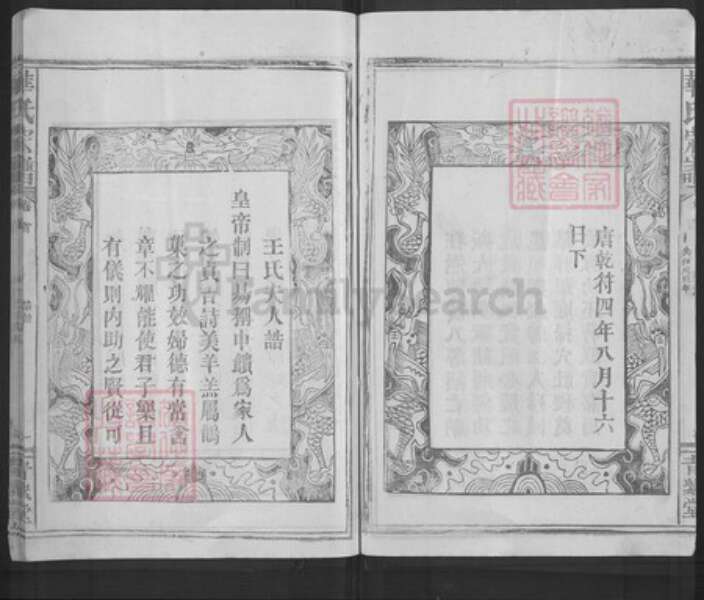 唐乾符四年八月十六
日下
王氏夫人誥
皇帝制曰易稱中饋爲家人
之貞吉詩美羊羔屬鵲
巢之功效婦德有常含
章不耀能使君子樂且
有儀則內助之賢從可
華氏宗譜
familysearch